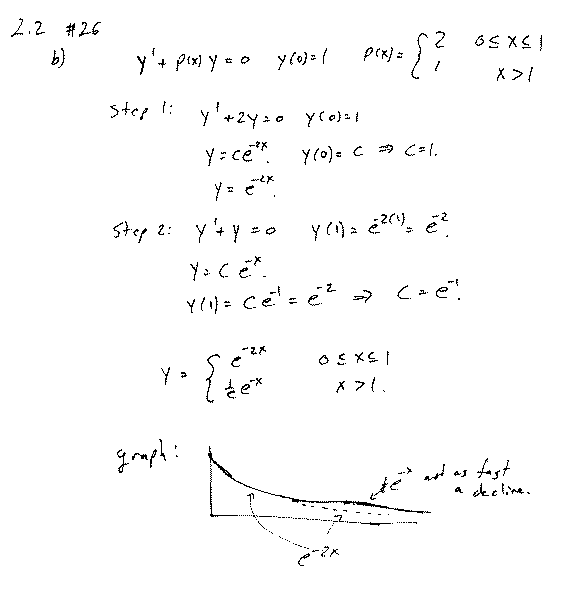 2.2 #26
b) y' + p(x) y = 0 y(0)=1 p(x) = { 2 0 ≤ x ≤ 1
1 x > 1
Step 1: y' + 2y = 0 y(0)=1
y = ce^{-2x}. y(0) = C ⇒ C=1.
y = e^{-2x}.
Step 2: y' + y = 0 y(1) = e^{-2(1)} = e^{-2}.
y = C e^{-x}.
y(1) = C e^{-1} = e^{-2} ⇒ C = e^{-1}.
y = { e^{-2x} 0 ≤ x ≤ 1
1/e e^{-x} x > 1.
graph:
1/e e^{-x} not as fast
a decline.
e^{-2x}